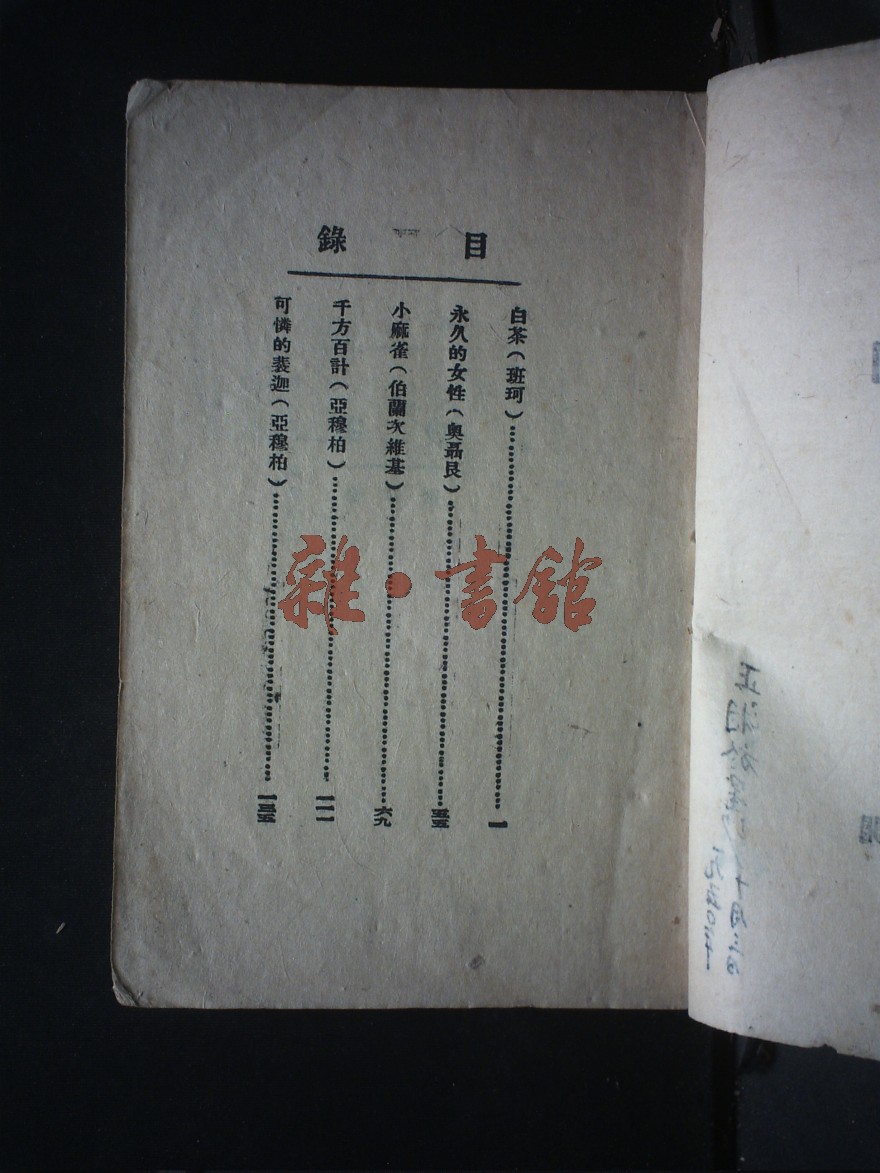 目錄
白茶（班珂）……一
永久的女性（奧聶良）……五五
小麻雀（伯蘭次維基）……六九
千方百計（亞穆柏）……一一一
可憐的裴迦（亞穆柏）……一三五
雜·書館